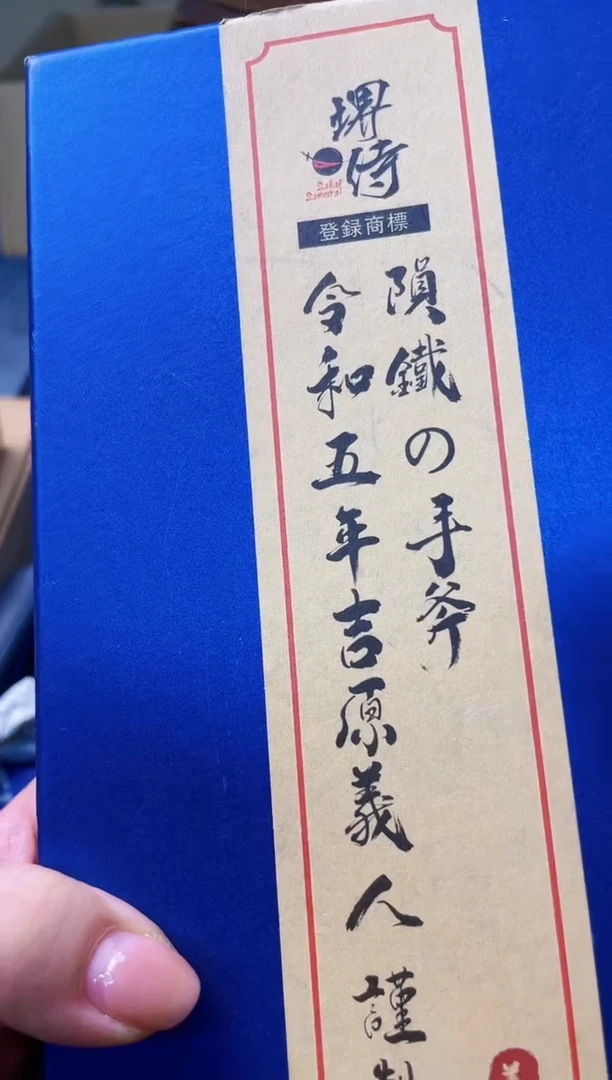 堺侍
Sakai
Samurai
登録商標
隕鐵の手斧
令和五年吉原義人謹制